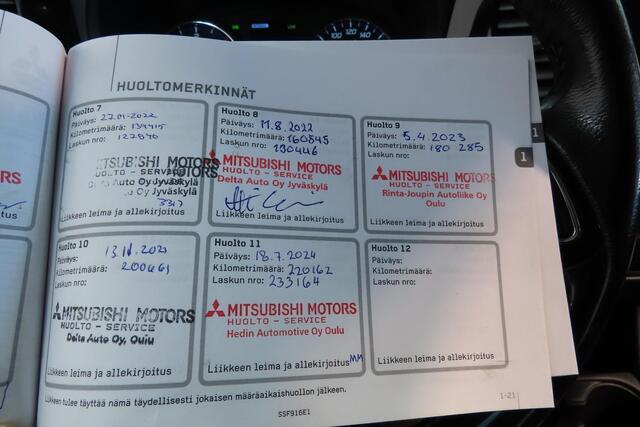 HUOLTOMERKINNÄT
Huolto 7
Päiväys: 27.01-2022
Kilometrimäärä: 139415
Laskun nro: 127840
MITSUBISHI MOTORS
HUOLTO - SERVICE
Delta Auto Oy Jyväskylä
3347
Liikkeen leima ja allekirjoitus
Huolto 8
Päiväys: 11.8.2022
Kilometrimäärä: 160845
Laskun nro: 130446
MITSUBISHI MOTORS
HUOLTO - SERVICE
Delta Auto Oy Jyväskylä
Liikkeen leima ja allekirjoitus
Huolto 9
Päiväys: 5.4.2023
Kilometrimäärä: 180 285
Laskun nro:
MITSUBISHI MOTORS
HUOLTO - SERVICE
Rinta-Joupin Autoliike Oy
Oulu
Liikkeen leima ja allekirjoitus
Huolto 10
Päiväys:
Kilometrimäärä: 200661
Laskun nro:
MITSUBISHI MOTORS
HUOLTO - SERVICE
Delta Auto Oy, Oulu
Liikkeen leima ja allekirjoitus
Huolto 11
Päiväys: 18.7.2024
Kilometrimäärä: 220162
Laskun nro: 233164
MITSUBISHI MOTORS
HUOLTO - SERVICE
Hedin Automotive Oy Oulu
Liikkeen leima ja allekirjoitus MM
Huolto 12
Päiväys:
Kilometrimäärä:
Laskun nro:
Liikkeen leima ja allekirjoitus
Liikkeen tulee täyttää nämä täydellisesti jokaisen määräaikaishuollon jälkeen.
1-21
SSF916E1
1
1
RS
itus
100 120 140